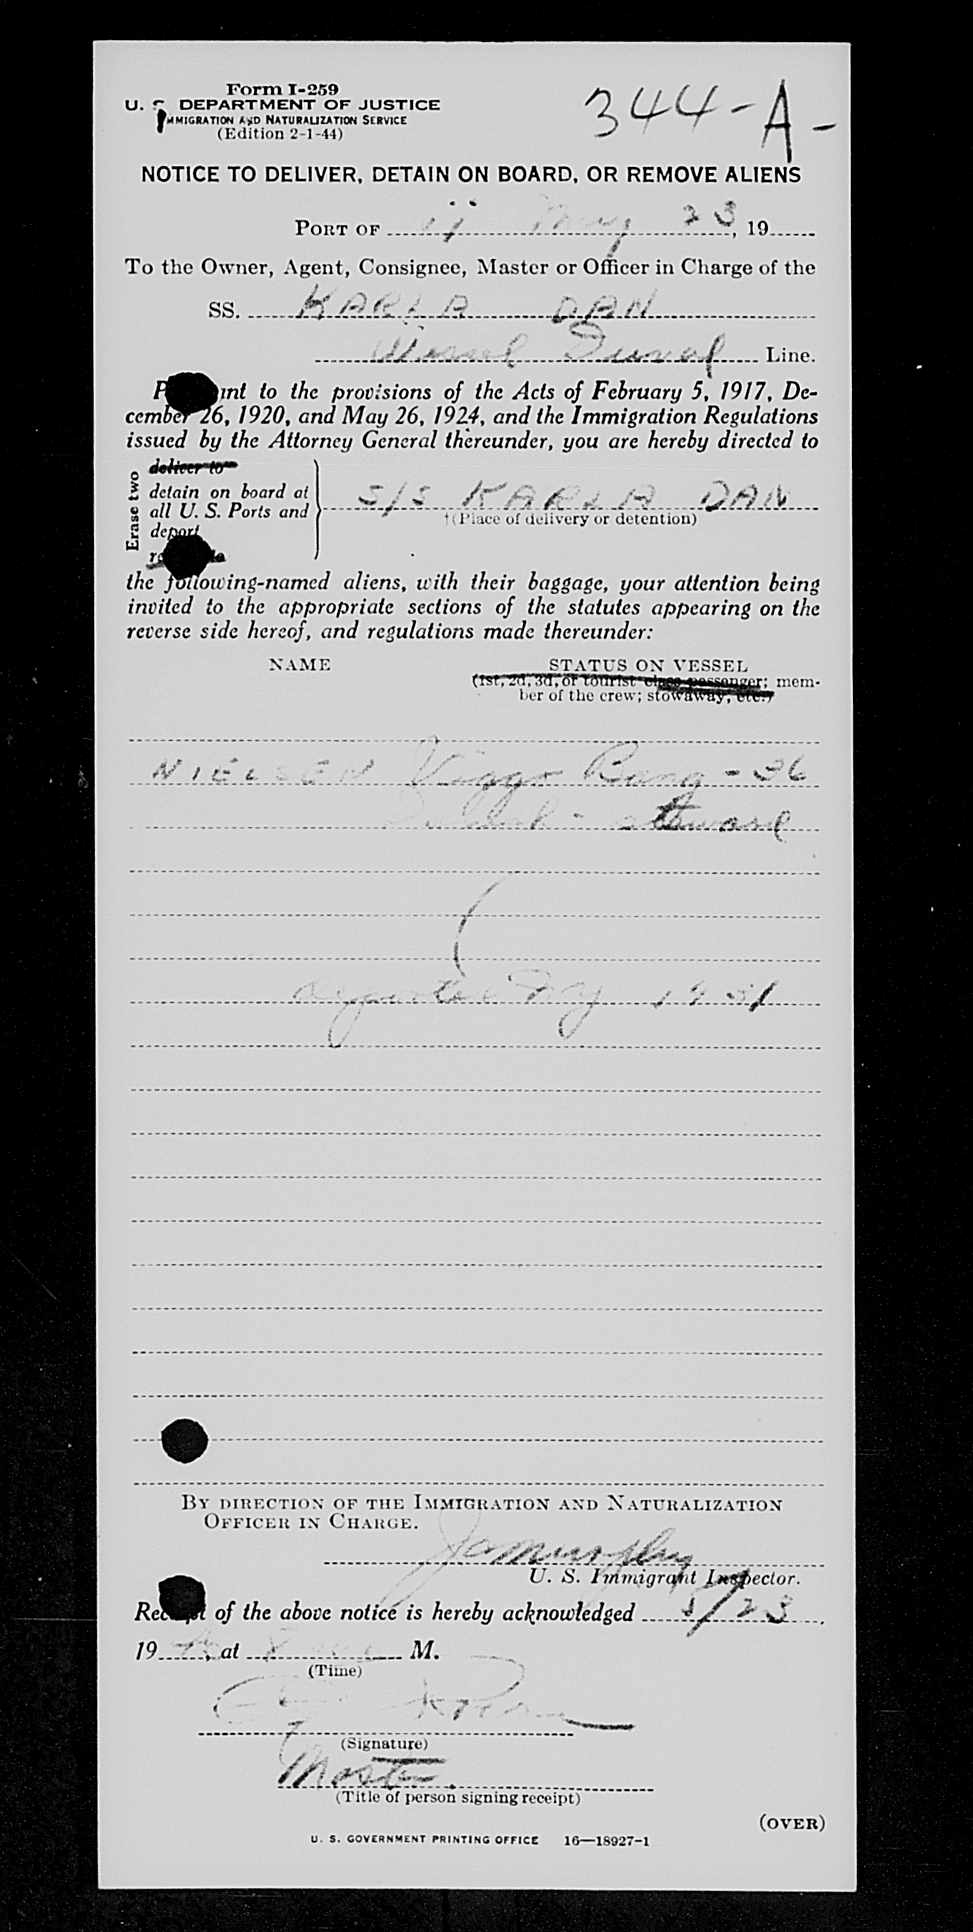 344-A-
Form I-259
U. S. DEPARTMENT OF JUSTICE
IMMIGRATION AND NATURALIZATION SERVICE
(Edition 2-1-44)
NOTICE TO DELIVER, DETAIN ON BOARD, OR REMOVE ALIENS
PORT OF May 23, 19
To the Owner, Agent, Consignee, Master or Officer in Charge of the
SS. KARLA DAN
Line.
to the provisions of the Acts of February 5, 1917, De-
cember 26, 1920, and May 26, 1924, and the Immigration Regulations
issued by the Attorney General thereunder, you are hereby directed to
Erase two
deliver to
detain on board at
all U. S. Ports and
deport
S/S KARLA DAN
†(Place of delivery or detention)
the following-named aliens, with their baggage, your attention being
invited to the appropriate sections of the statutes appearing on the
reverse side hereof, and regulations made thereunder:
NAME STATUS ON VESSEL
(1st, 2d, 3d, or tourist class passenger; mem-
ber of the crew; stowaway, etc.)
NIELSEN Viggo Bang - 36
- steward
deported NY 1951
BY DIRECTION OF THE IMMIGRATION AND NATURALIZATION
OFFICER IN CHARGE.
U. S. Immigrant Inspector.
Receipt of the above notice is hereby acknowledged 5/23,
19 , at M.
(Time)
(Signature)
Master.
(Title of person signing receipt)
(OVER)
U. S. GOVERNMENT PRINTING OFFICE 16—18927-1